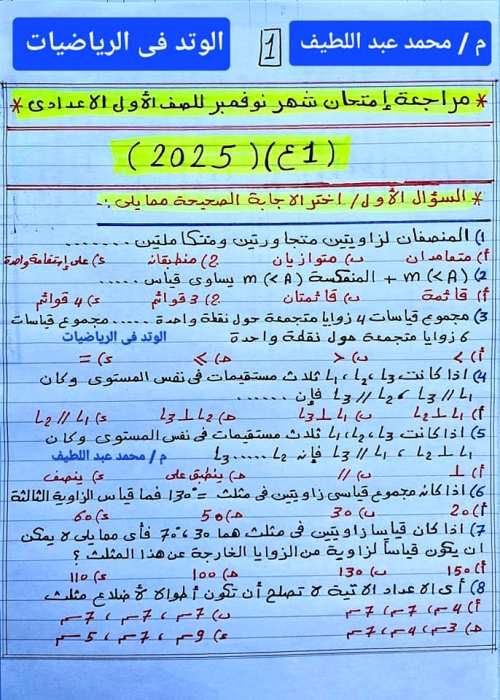 م / محمد عبد اللطيف
1
الوتد فى الرياضيات
* مراجعة إمتحان شهر نوفمبر للصف الأول الاعدادى *
(ع1)(2025)
* السؤال الأول / اختر الاجابة الصحيحة مما يلى :-
1) المنصفان لزاويتين متجاورتين ومتكاملتين .......
أ) متعامدان ب) متوازيان ج) منطبقان د) على إستقامة واحدة
2) m(<A) + m(<A) المنعكسة يساوى قياس .....
أ) قائمة ب) قائمتان ج) 3 قوائم د) 4 قوائم
3) مجموع قياسات 4 زوايا متجمعة حول نقطة واحدة ..... مجموع قياسات
6 زوايا متجمعة حول نقطة واحدة
الوتد فى الرياضيات
أ) > ب) < ج) ≥ د) =
4) اذا كانت L₁ ، L₂ ، L₃ ثلاث مستقيمات فى نفس المستوى وكان
L₁ // L₃ ، L₂ // L₃ فإن .......
أ) L₁ ⊥ L₂ ب) L₃ ⊥ L₁ ج) L₃ ⊥ L₂ د) L₂ // L₁
5) اذا كانت L₁ ، L₂ ، L₃ ثلاث مستقيمات فى نفس المستوى وكان
L₁ ⊥ L₂ ، L₁ // L₃ فإن L₂ ..... L₃
م / محمد عبد اللطيف
أ) ⊥ ب) // ج) ينطبق على د) ينصف
6) اذا كان مجموع قياسى زاويتين فى مثلث = 130° فما قياس الزاوية الثالثة
أ) 20 ب) 30 ج) 50 د) 60
7) اذا كان قياسا زاويتين فى مثلث هما 30° ، 70° فأى مما يلى لا يمكن
ان يكون قياساً لزاوية من الزوايا الخارجة عن هذا المثلث ؟
أ) 150 ب) 130 ج) 100 د) 110
8) أى الاعداد الاتية لا تصلح أن تكون أطوالا لأضلاع مثلث
أ) 4سم ، 7سم ، 7سم ب) 7سم ، 7سم ، 7سم
ج) 3سم ، 4سم ، 7سم د) 9سم ، 7سم ، 5سم